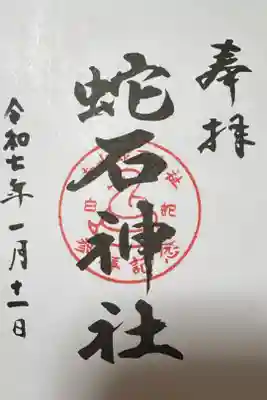 奉拝
蛇石神社
令和七年一月十一日